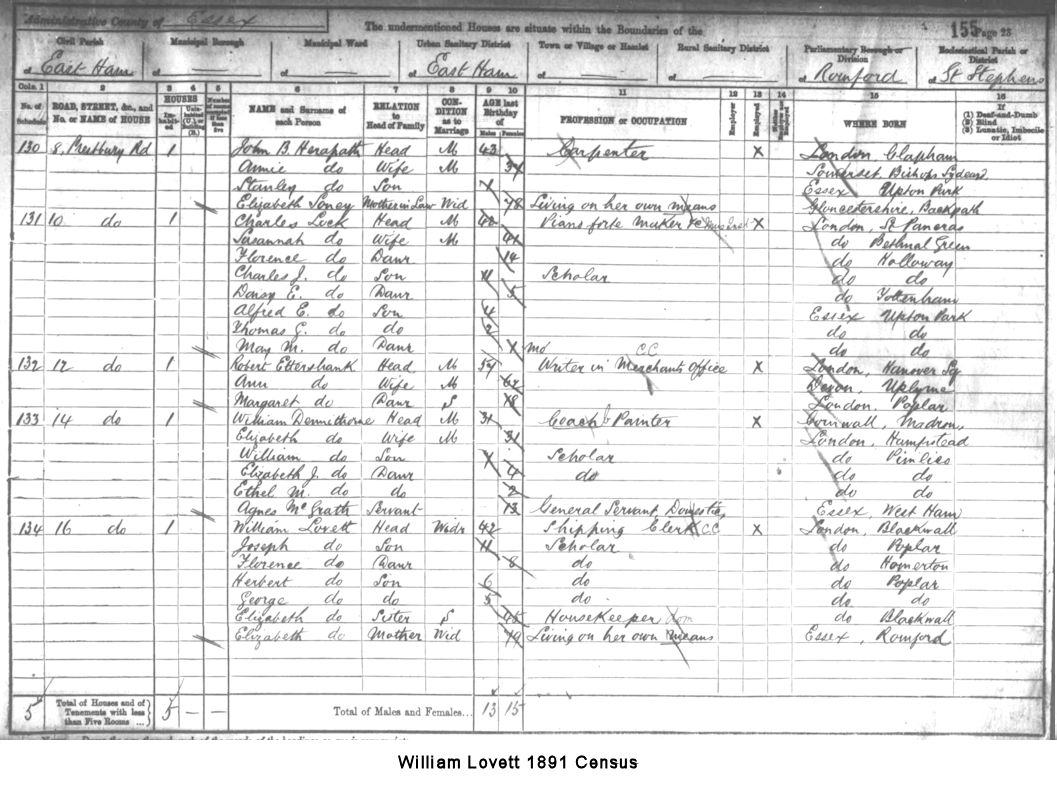 Administrative County of Essex
The undermentioned Houses are situate within the Boundaries of the
155 Page 23
Civil Parish Municipal Borough Municipal Ward Urban Sanitary District Town or Village or Hamlet Rural Sanitary District Parliamentary Borough or Division Ecclesiastical Parish or District
of East Ham of of of East Ham of of of Romford of St Stephens
Cols. 1 2 3 4 5 6 7 8 9 10 11 12 13 14 15 16
No. of Schedule ROAD, STREET, &c., and No. or NAME of HOUSE HOUSES Inhabited Uninhabited (U.) or Building (B.) Number of rooms occupied if less than five NAME and Surname of each Person RELATION to Head of Family CONDITION as to Marriage AGE last Birthday of Males Females PROFESSION or OCCUPATION Employer Employed Neither Employer nor Employed WHERE BORN If (1) Deaf-and-Dumb (2) Blind (3) Lunatic, Imbecile or Idiot
130 8, Prestbury Rd 1 John B. Herapath Head M 43 Carpenter X London, Clapham
Annie do Wife M 37 Somerset, Bishops Lydeard
Stanley do Son Essex Upton Park
Elizabeth Mother in Law Wid 78 Living on her own means Gloucestershire,
131 10 do 1 Charles Lock Head M 42 Piano forte Maker X London, St Pancras
Susannah do Wife M do Bethnal Green
Florence do Daur 14 do Holloway
Charles J. do Son 11 Scholar do do
Daisy E. do Daur 5 do Tottenham
Alfred E. do Son 4 Essex Upton Park
Thomas G. do do 2 do do
May M. do Daur mo do do
132 12 do 1 Robert Ettershank Head M 59 Writer in Merchants Office CC X London, Hanover Sq
Ann do Wife M Devon, Uplyme
Margaret do Daur S 18 London, Poplar
133 14 do 1 William Dennithorne Head M 31 Coach Painter X Cornwall, Madron,
Elizabeth do Wife M 31 London, Hampstead
William do Son Scholar do Pimlico
Elizabeth J. do Daur 4 do do do
Ethel M. do do 2 do do
Agnes McGrath Servant 13 General Servant, Domestic Essex, West Ham
134 16 do 1 William Lovett Head Widr 42 Shipping Clerk CC X London, Blackwall
Joseph do Son 11 Scholar do Poplar
Florence do Daur 8 do do Homerton
Herbert do Son 6 do do Poplar
George do do 5 do do do
Elizabeth do Sister S 45 HouseKeeper dom do Blackwall
Elizabeth do Mother Wid 79 Living on her own means Essex, Romford
5 Total of Houses and of Tenements with less than Five Rooms ... 5 — — Total of Males and Females... 13 15
William Lovett 1891 Census